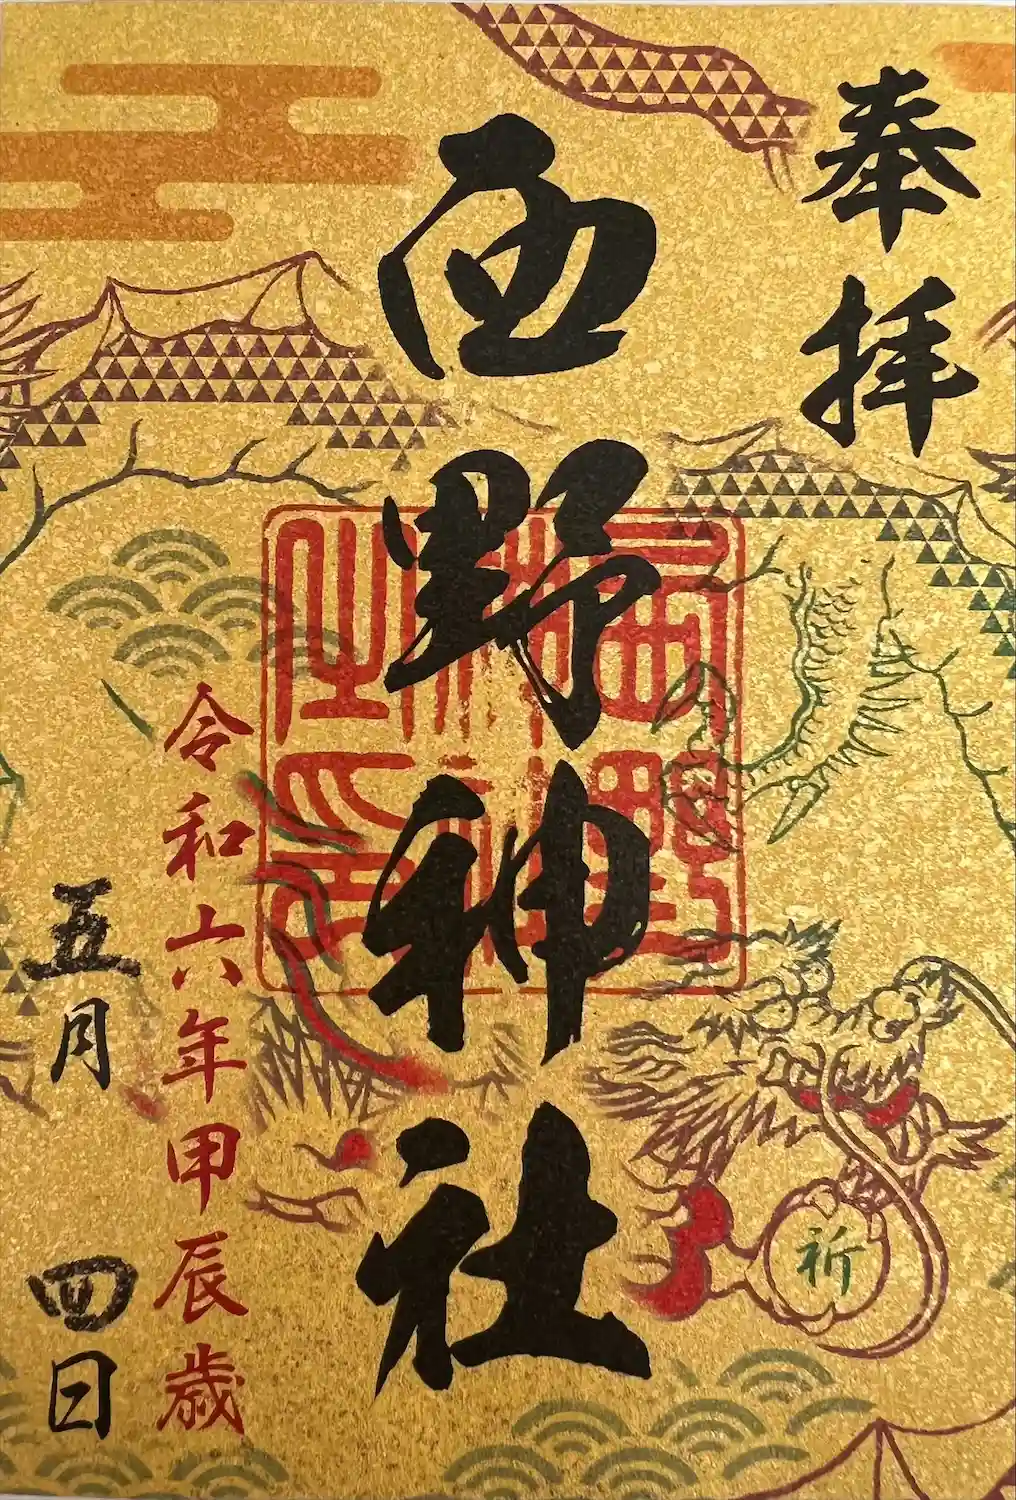 奉拝
西野神社
西野神社之印
令和六年甲辰歳
五月四日
祈